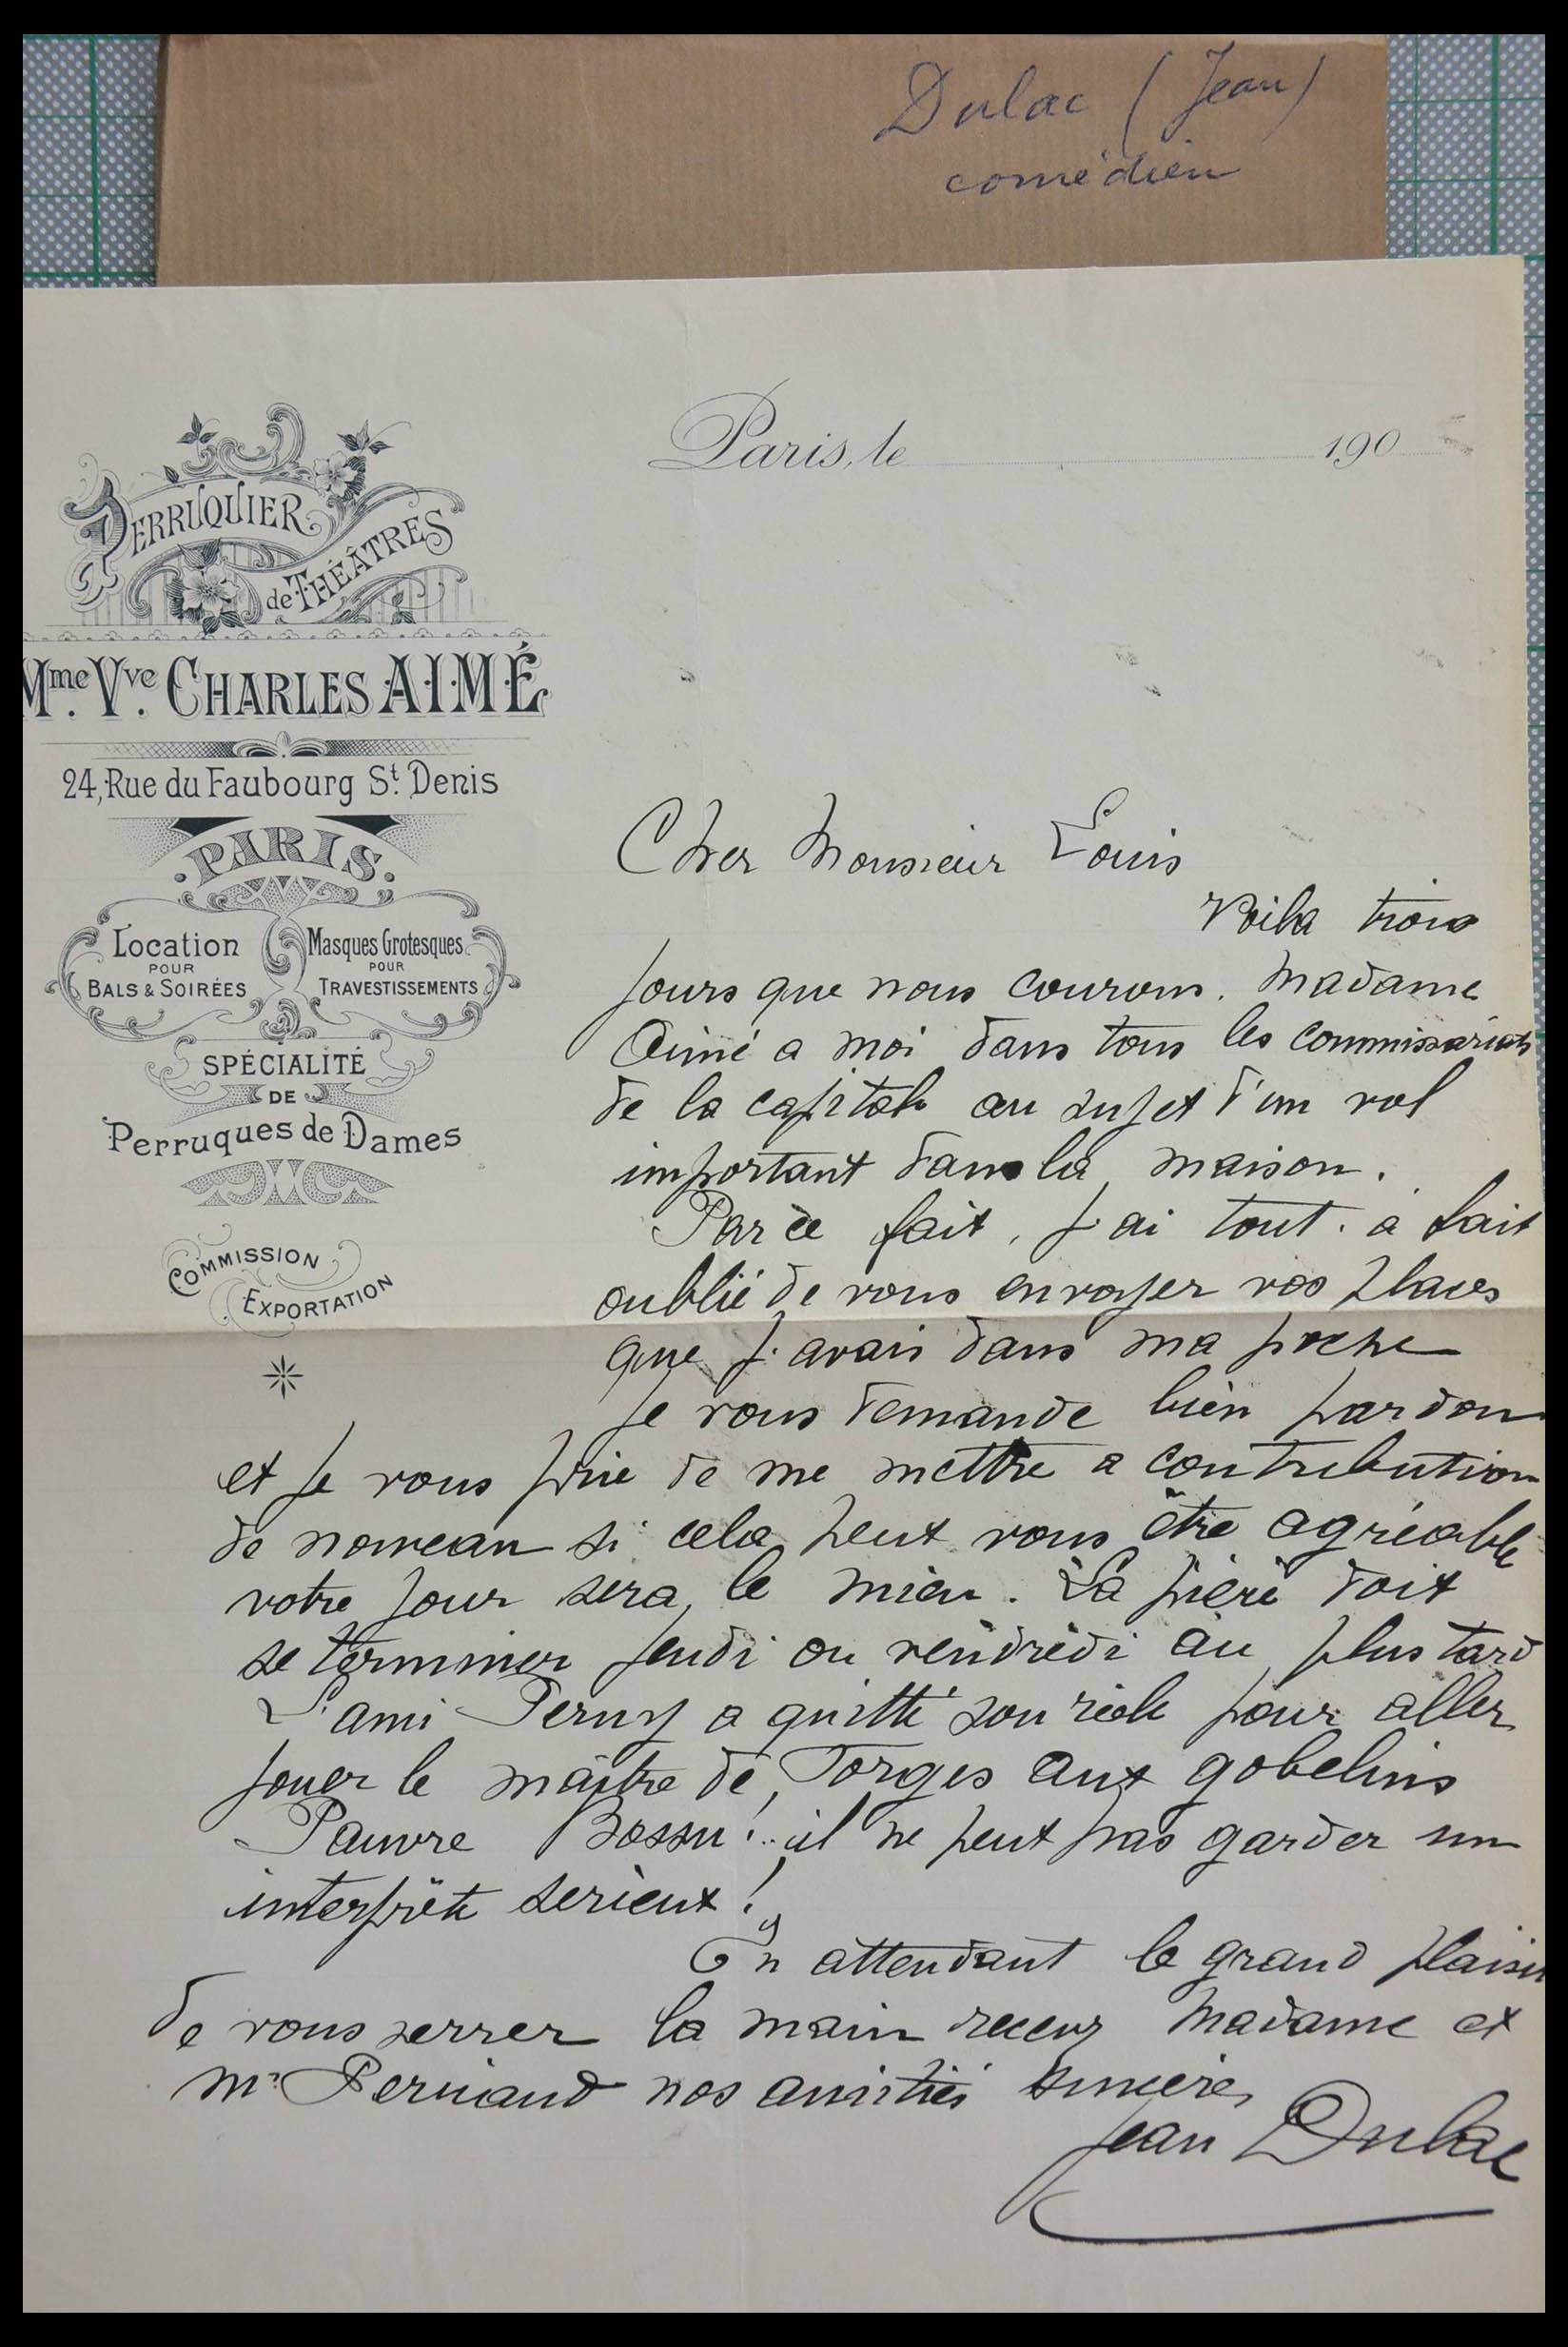 Dulac (Jean)
comédien
Paris, le 190
PERRUQUIER
de THÉÂTRES
Mme. Vve. CHARLES AIMÉ
24, Rue du Faubourg St. Denis
PARIS.
Location
POUR
BALS & SOIRÉES
Masques Grotesques
POUR
TRAVESTISSEMENTS
SPÉCIALITÉ
DE
Perruques de Dames
COMMISSION
EXPORTATION
Cher Monsieur Louis
Voila trois
jours que nous courons. Madame
Aimé a moi dans tous les commissariats
de la capitale au sujet d'un vol
important dans la maison.
Par ce fait, j'ai tout. à fait
oublié de vous envoyer vos places
que j'avais dans ma poche
je vous demande bien pardon
et je vous prie de me mettre a contribution
de nouveau si cela peut vous être agréable
votre jour sera le mien. La pièce doit
se terminer jeudi ou vendredi au plus tard
L'ami a quitté son role pour aller
jouer le maître de Forges aux gobelins
Pauvre Bossu!.. il ne peut pas garder un
interprète serieux!
En attendant le grand plaisir
de vous serrer la main recevez Madame et
Mr nos amitiés sincères
Jean Dulac